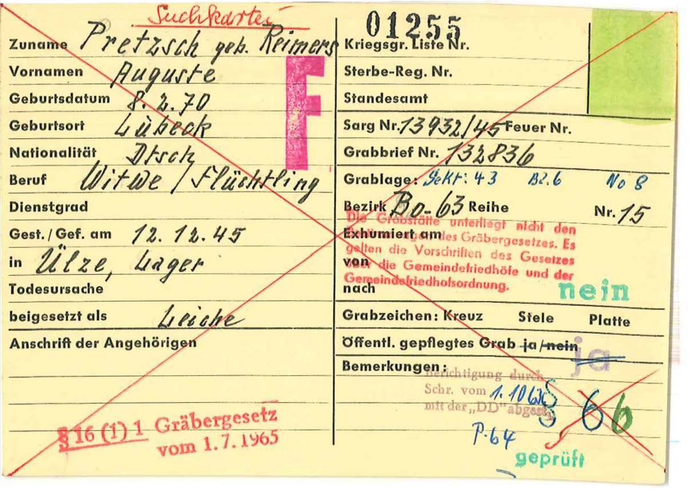 Suchkarte
01255
Zuname Pretzsch geb. Reimers
Vornamen Auguste
Geburtsdatum 8.2.70
Geburtsort Lübeck
Nationalität Dtsch
Beruf Witwe / Flüchtling
Dienstgrad
Gest./Gef. am 12.12.45
in Ülze, Lager
Todesursache
beigesetzt als Leiche
Anschrift der Angehörigen
§ 16 (1) 1 Gräbergesetz
vom 1.7.1965
F
Kriegsgr. Liste Nr.
Sterbe-Reg. Nr.
Standesamt
Sarg Nr. 13932/45 Feuer Nr.
Grabbrief Nr. 132836
Grablage: Sekt: 43 Bz. 6 No 8
Bezirk Bo-63 Reihe Nr. 15
Die Grabstätte unterliegt nicht den
des Gräbergesetzes. Es
Exhumiert am
gelten die Vorschriften des Gesetzes
von
über die Gemeindefriedhöfe und der
Gemeindefriedhofsordnung.
nach
nein
Grabzeichen: Kreuz Stele Platte
Öffentl. gepflegtes Grab ja/nein
ja
Bemerkungen:
Berichtigung durch
Schr. vom 1.10.
mit der „DD" abgest.
§ 6
6
P-64
geprüft